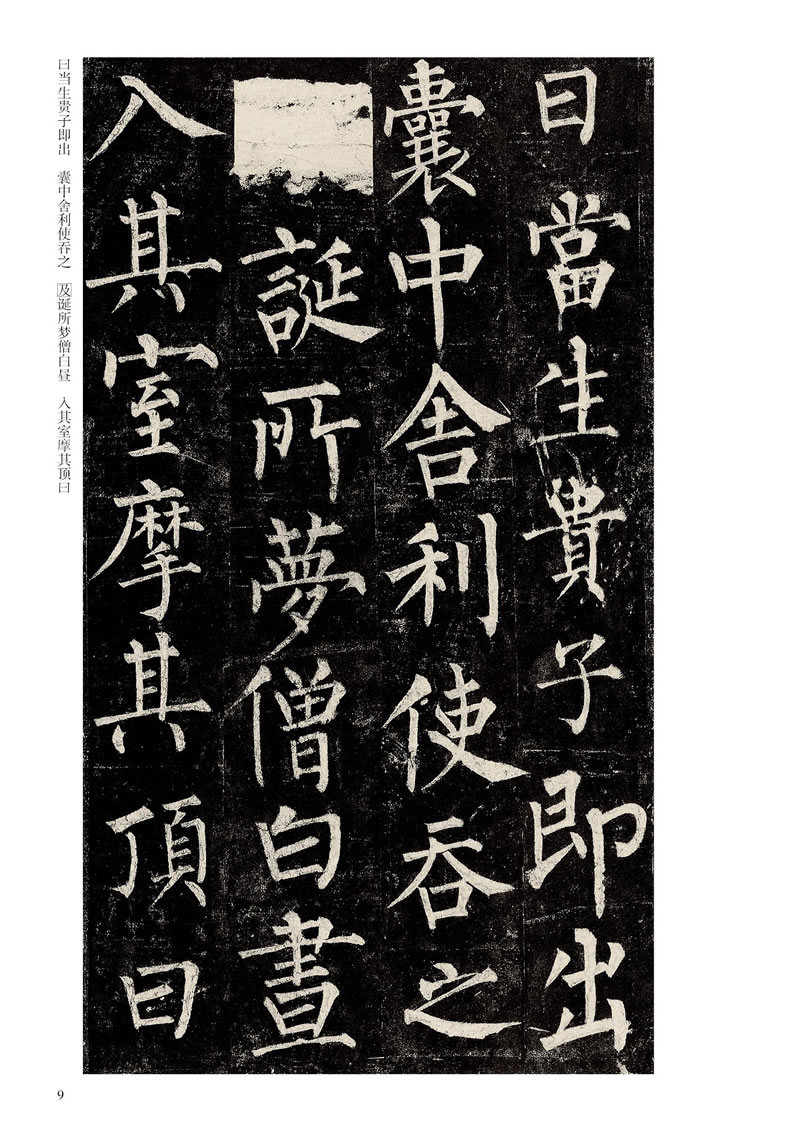 曰當生貴子即出
囊中舍利使吞之
誕所夢僧白晝
入其室摩其頂曰
曰当生贵子即出　囊中舍利使吞之　及诞所梦僧白昼　入其室摩其顶曰
9